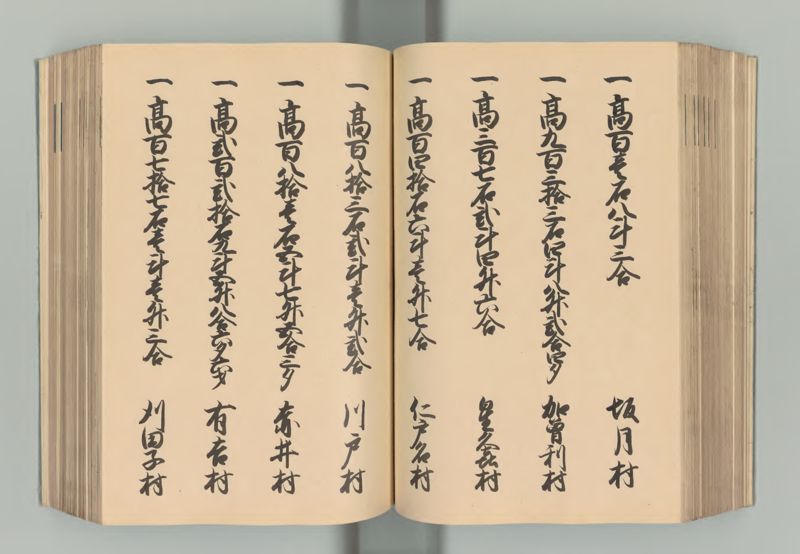 一 高百壱石八斗三合 坂月村
一 高九百三拾三石四斗八升弐合四夕 加曽利村
一 高三百七石弐斗四升六合 星久喜村
一 高百四拾石六斗壱升七合 仁戸名村
一 高百八拾三石弐斗壱升弐合 川戸村
一 高百八拾壱石五斗七升五合三夕 赤井村
一 高弐百弐拾石九斗五升八合六夕六才 有吉村
一 高百七拾七石壱斗壱升三合 刈田子村